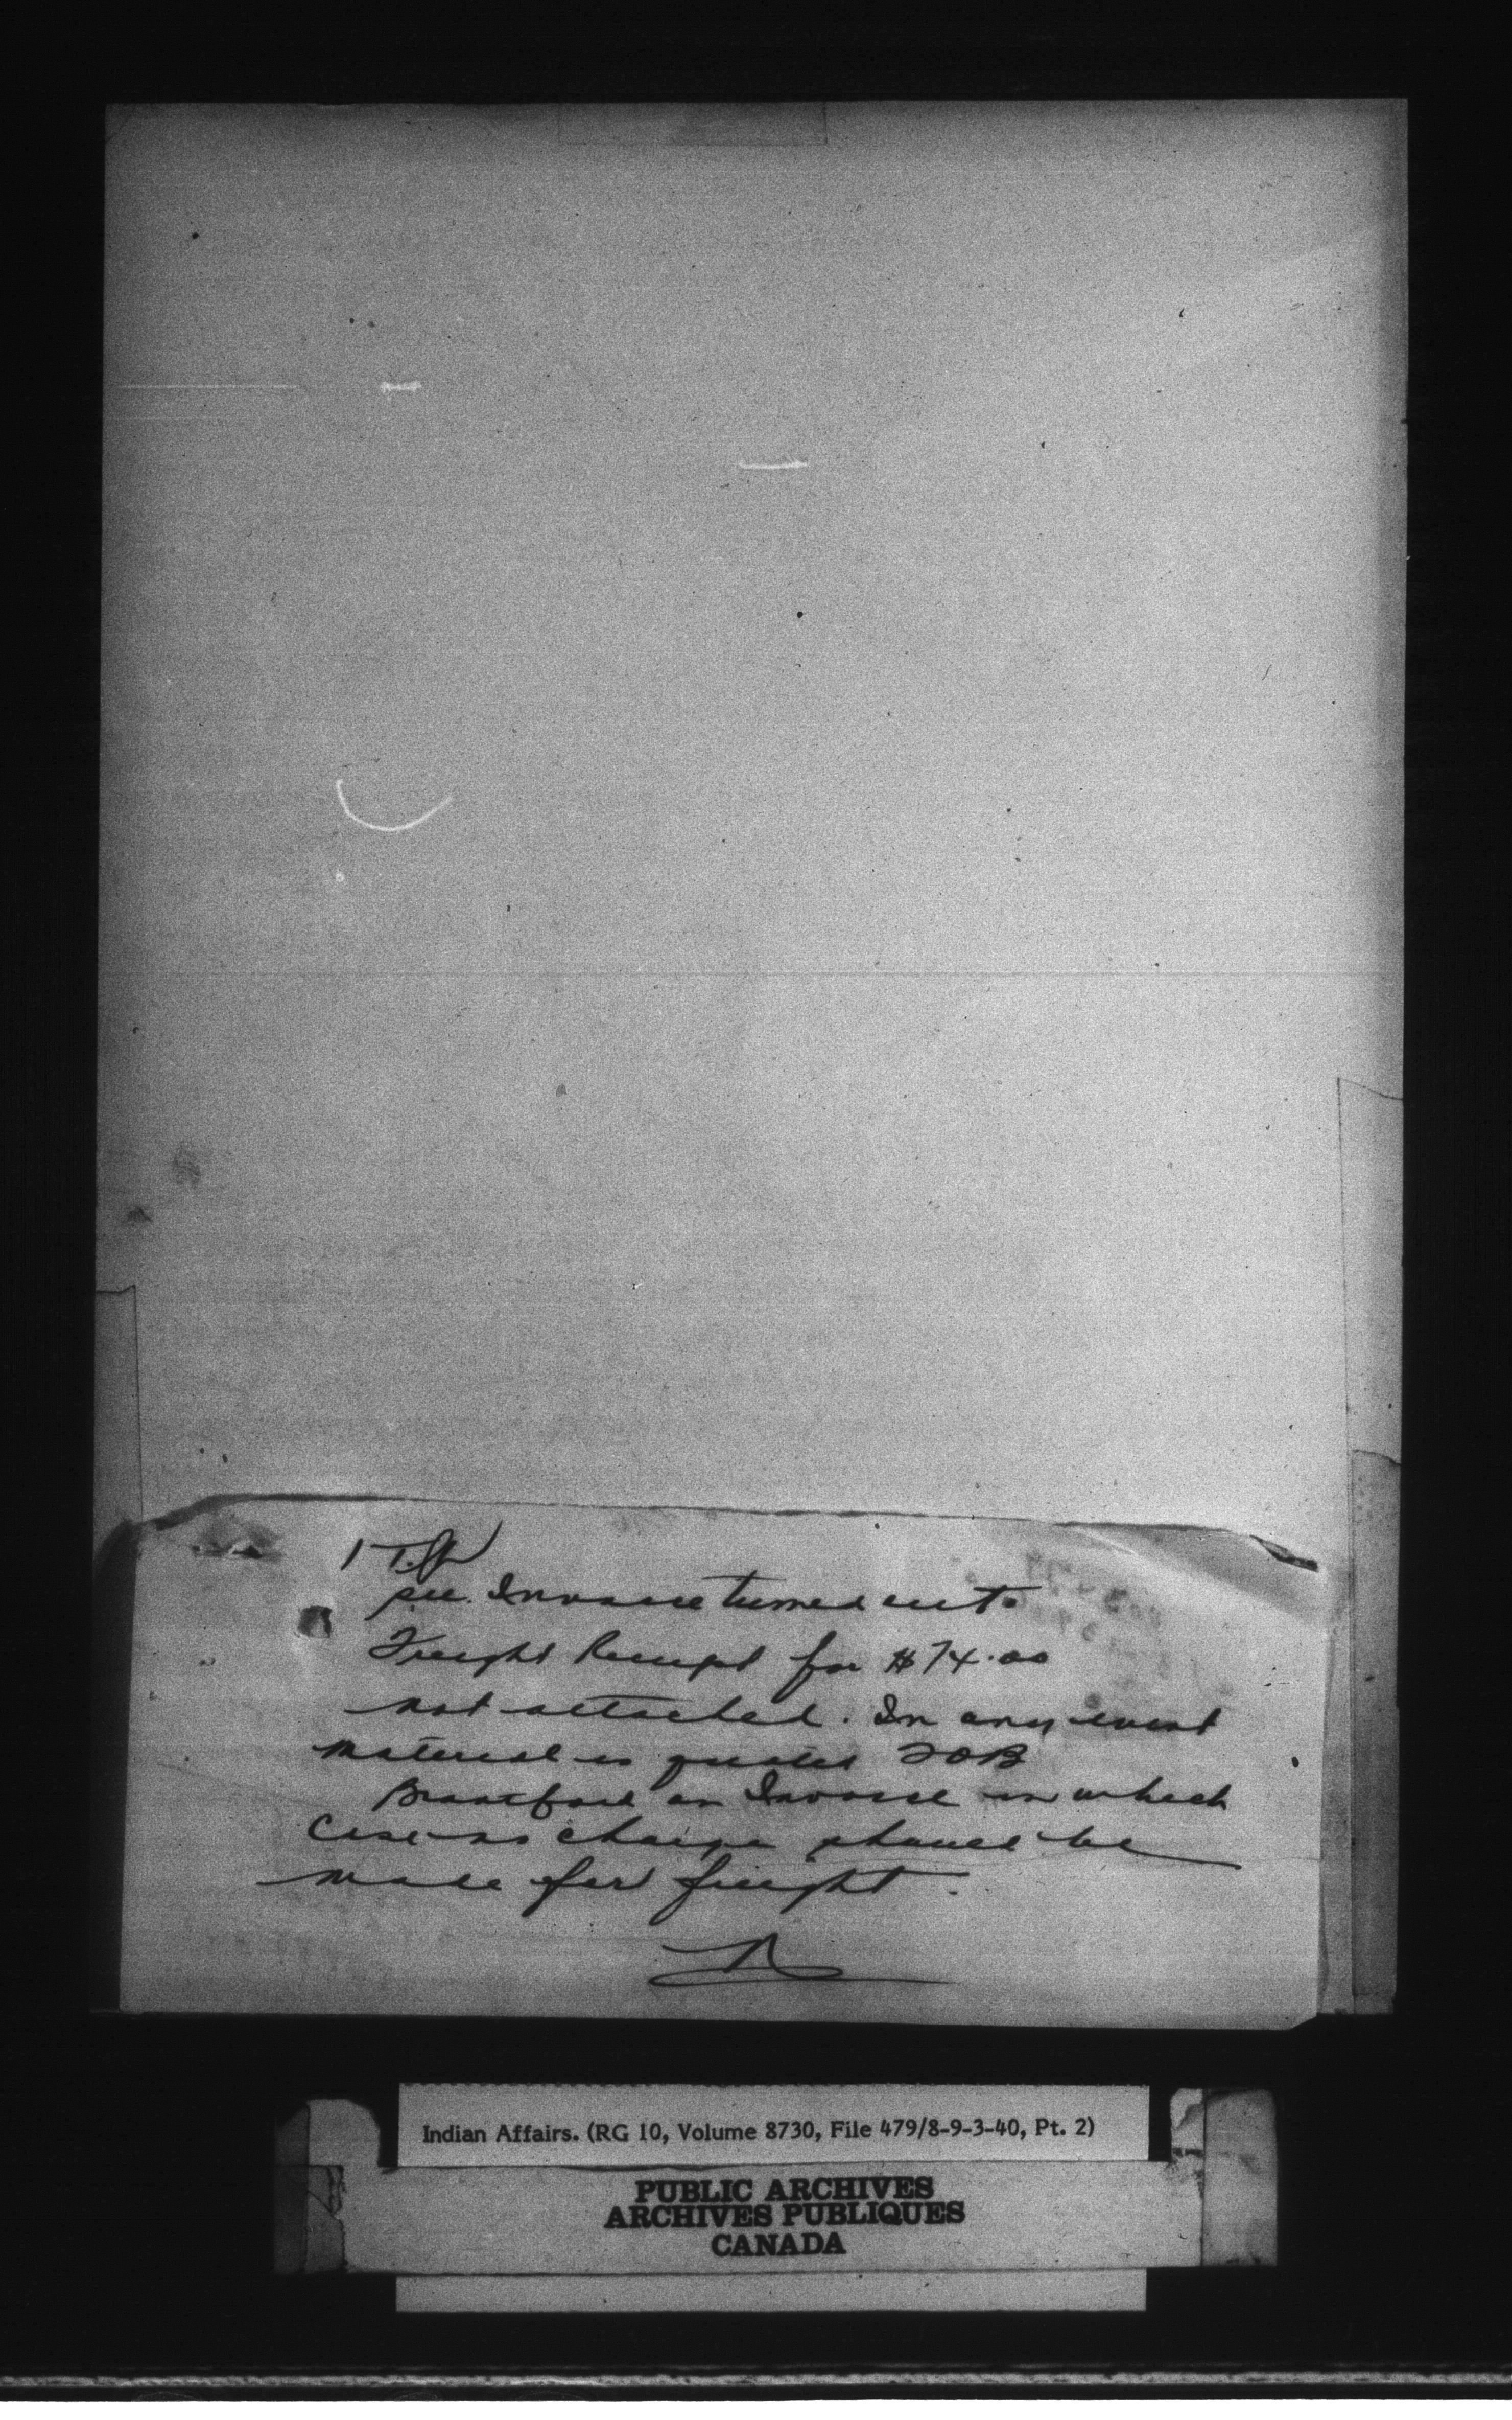 see. Invoice turned out.
Freight Receipt for $74.00
not attached. In any event
material is quoted FOB
Brantford on Invoice in which
Case no charge should be
made for freight.
Indian Affairs. (RG 10, Volume 8730, File 479/8-9-3-40, Pt. 2)
PUBLIC ARCHIVES
ARCHIVES PUBLIQUES
CANADA